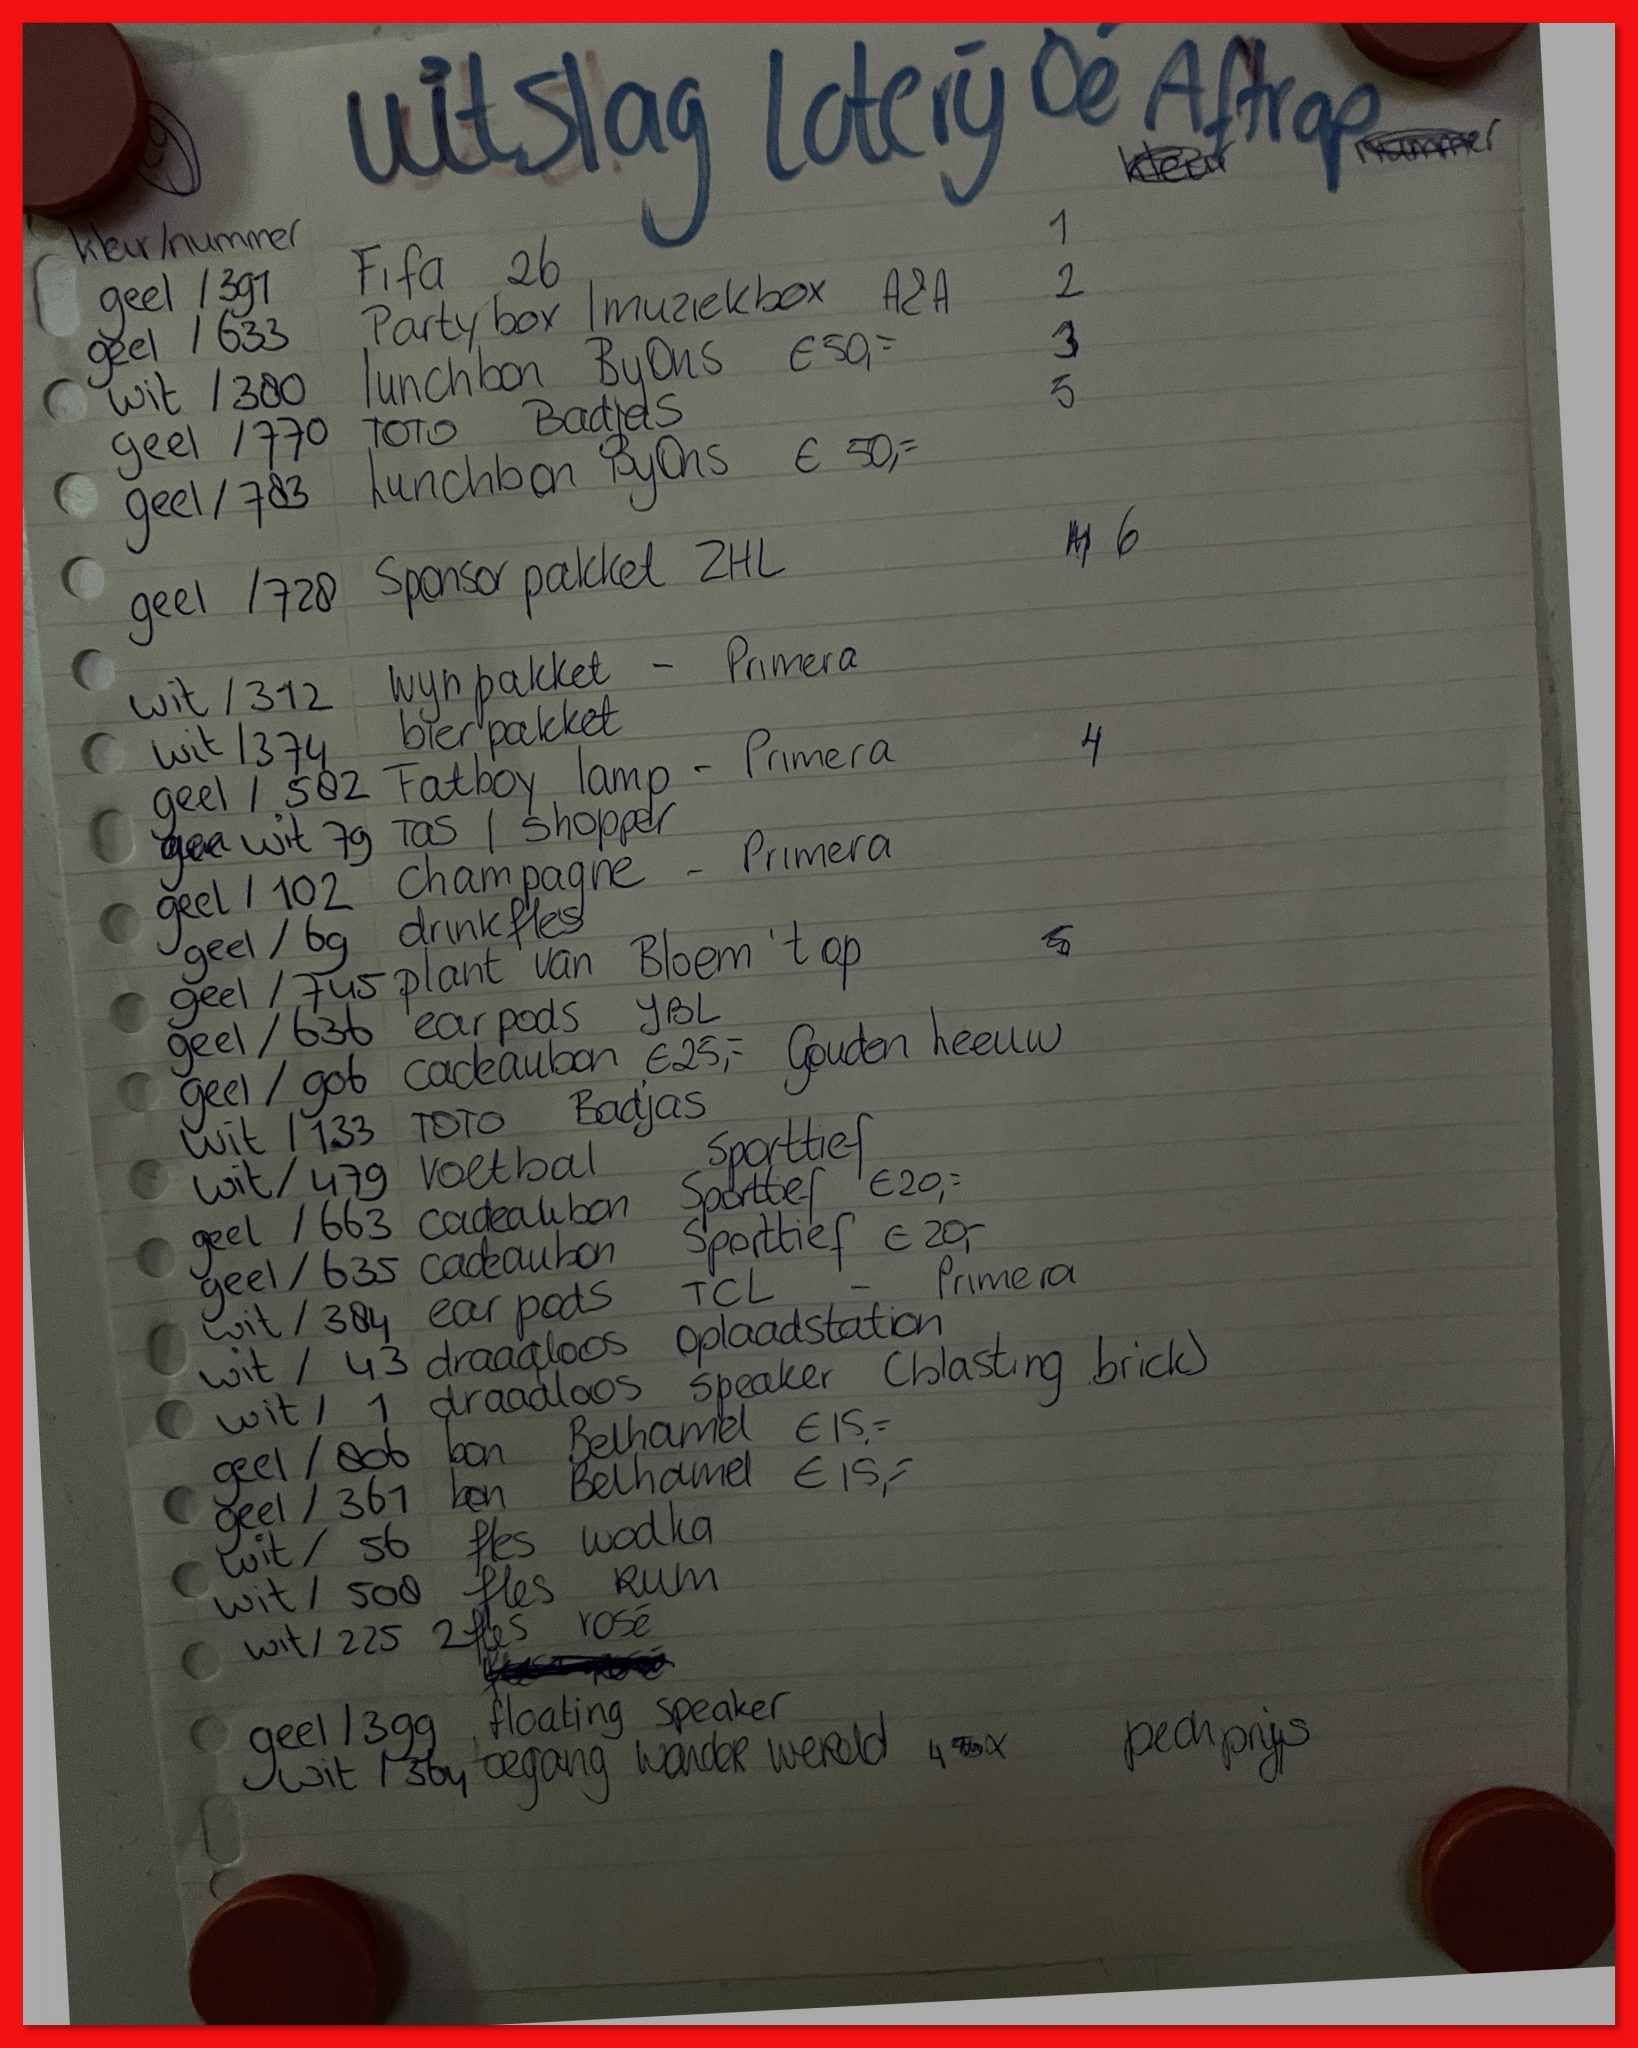 uitslag loterij Dé Aftrap
kleur nummer
kleur/nummer
geel /391 Fifa 26 1
geel /633 Partybox /muziekbox A&A 2
wit /380 lunchbon ByOns € 50,= 3
geel /770 TOTO Badjas 5
geel /783 Lunchbon ByOns € 50,=
geel /728 Sponsorpakket ZHL 6
wit /312 wijnpakket - Primera
wit /374 bierpakket
geel / 582 Fatboy lamp - Primera 4
wit 79 Tas / shopper
geel / 102 champagne - Primera
geel / 69 drinkfles
geel / 745 plant van Bloem 't op 5
geel / 636 earpods JBL
geel / 906 cadeaubon €25,= Gouden Leeuw
wit / 133 TOTO Badjas
wit / 479 voetbal Sporttief
geel / 663 cadeaubon Sporttief €20,=
geel / 635 cadeaubon Sporttief € 20,-
wit / 384 earpods TCL - Primera
wit / 43 draadloos oplaadstation
wit / 1 draadloos speaker (blasting brick)
geel / 806 bon Belhamel €15,=
geel / 361 bon Belhamel €15,=
wit / 56 fles wodka
wit / 508 fles RUM
wit / 225 2 fles rosé
geel / 399 floating speaker
wit / 364 toegang wonder wereld 4 x pechprijs